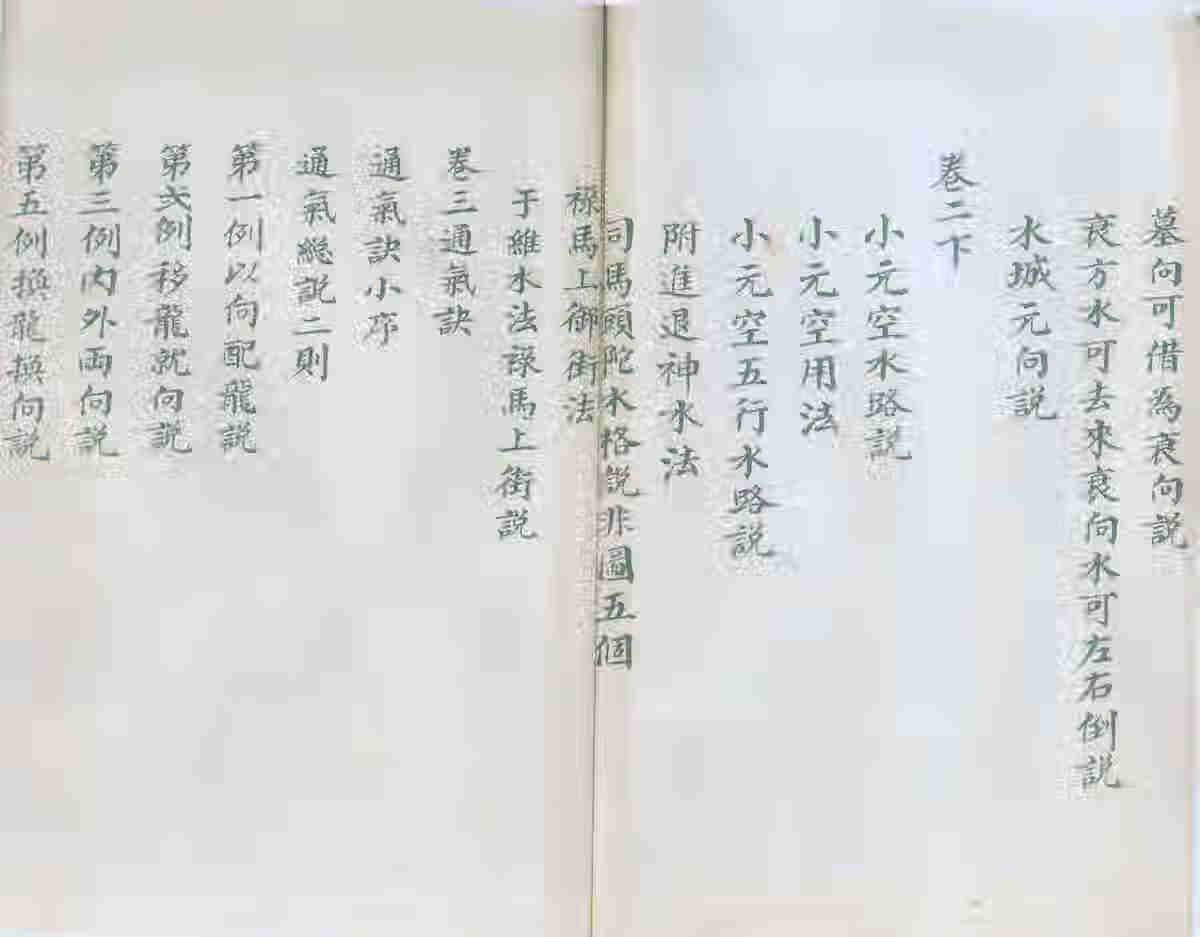 墓向可借為衰向説
衰方水可去來衰向水可左右倒説
水城元向説
卷二下
小元空水路説
小元空用法
小元空五行水路説
附進退神水法
司馬頭陀水格説非圖五個
祿馬上御街法
于維水法祿馬上街説
卷三通氣訣
通氣訣小序
通氣總説二則
第一例以向配龍説
第弍例移龍就向説
第三例內外両向説
第五例換龍換向説